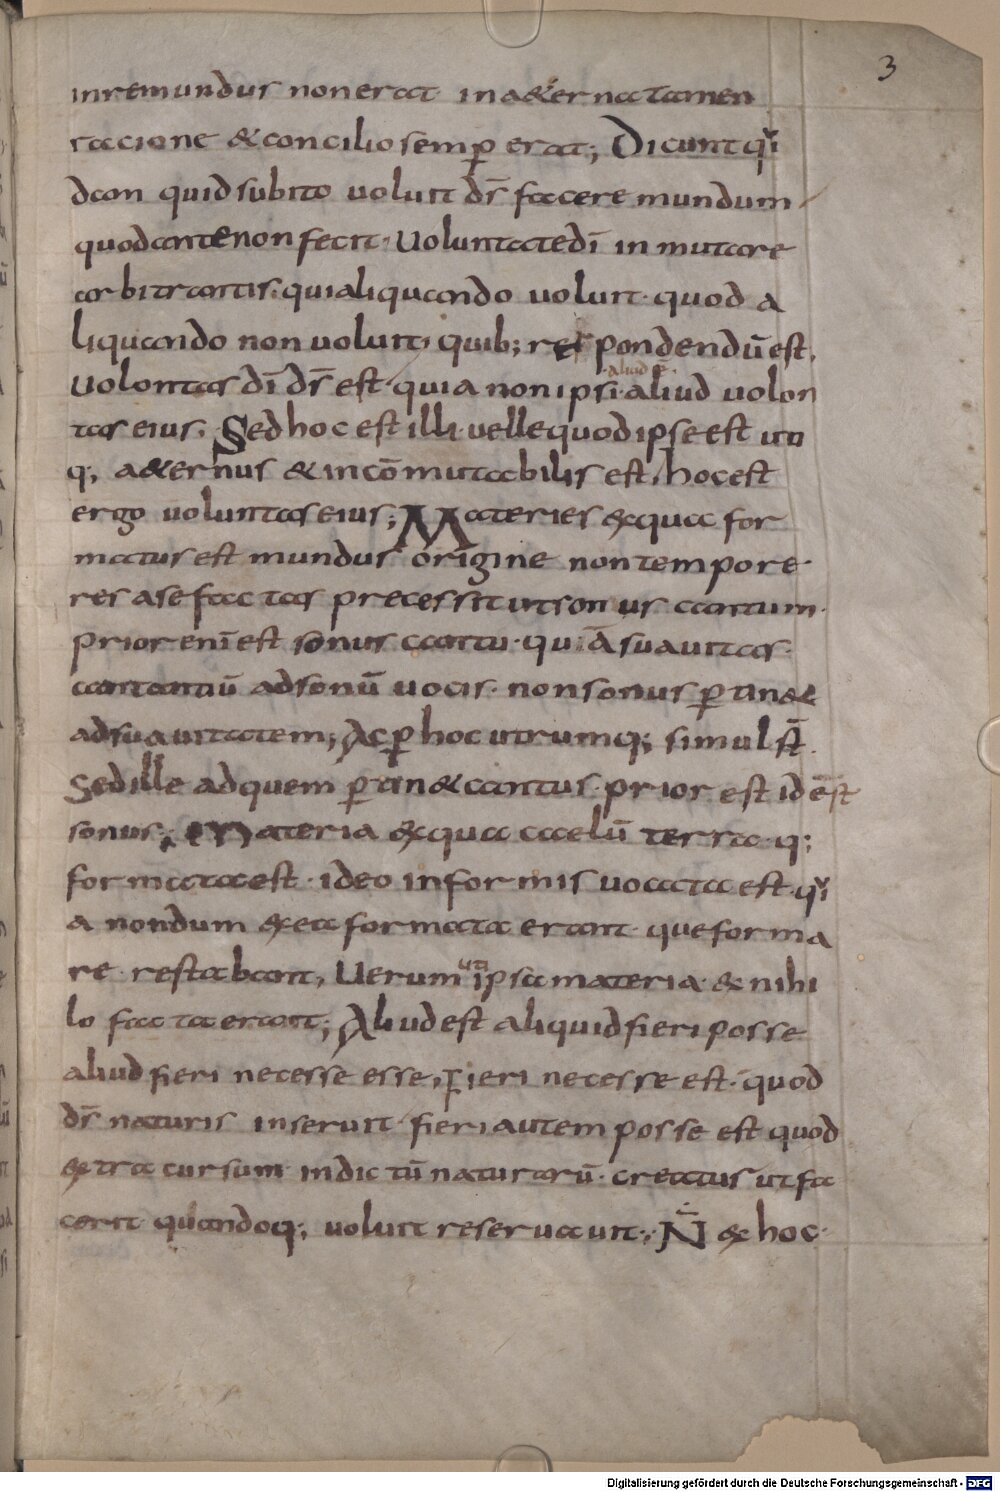 3
inremundus non erat in a&ernatamen
racione & concilio semp̱ erat; Dicunt qͥ
dam quid subito voluit ds̄ facere mundum
quod ante non fecit· Voluntate dī inmutare
arbitrantis· qui aliquando voluit· quod a
liquando non voluit; quib; respondendū est,
aliud ē
Volontas dī ds̄ est· quia non ipsi· aliud volon
tas eius. Sed hoc est illi velle quod ipse est uta
q; a&ernus & incōmutabilis est, hoc est
ergo voluntas eius; Materies exqua for
matus est mundus origine non tempore·
res ase factas precessit ut sonus cantum·
prior enī est sonus cantu· quiā suauitas·
cantantiū ad sonū uocis· non sonus p̱tin&
ad suauitatem; Ac p̱ hoc utrumq; simul st̄.
Sed ille ad quem p̱tin& cantus· prior est id ēst
sonus; Materia exqua caelū terraq;
formata est· ideo informis uocata est· qͥ
a nondum exea formata erant· que forma
uti
re restabant, Uerum ipsa materia & nihi
lo facta erant; Aliud est aliquid fieri posse
aliud fieri necesse esse, Fieri necesse est· quod
ds̄ naturis inseruit· fieri autem posse est quod
extra cursum indictū naturarū· creatus ut fa
cerit quandoq; voluit reseruauit·; N̄ ex hoc·
Digitalisierung gefördert durch die Deutsche Forschungsgemeinschaft - DFG